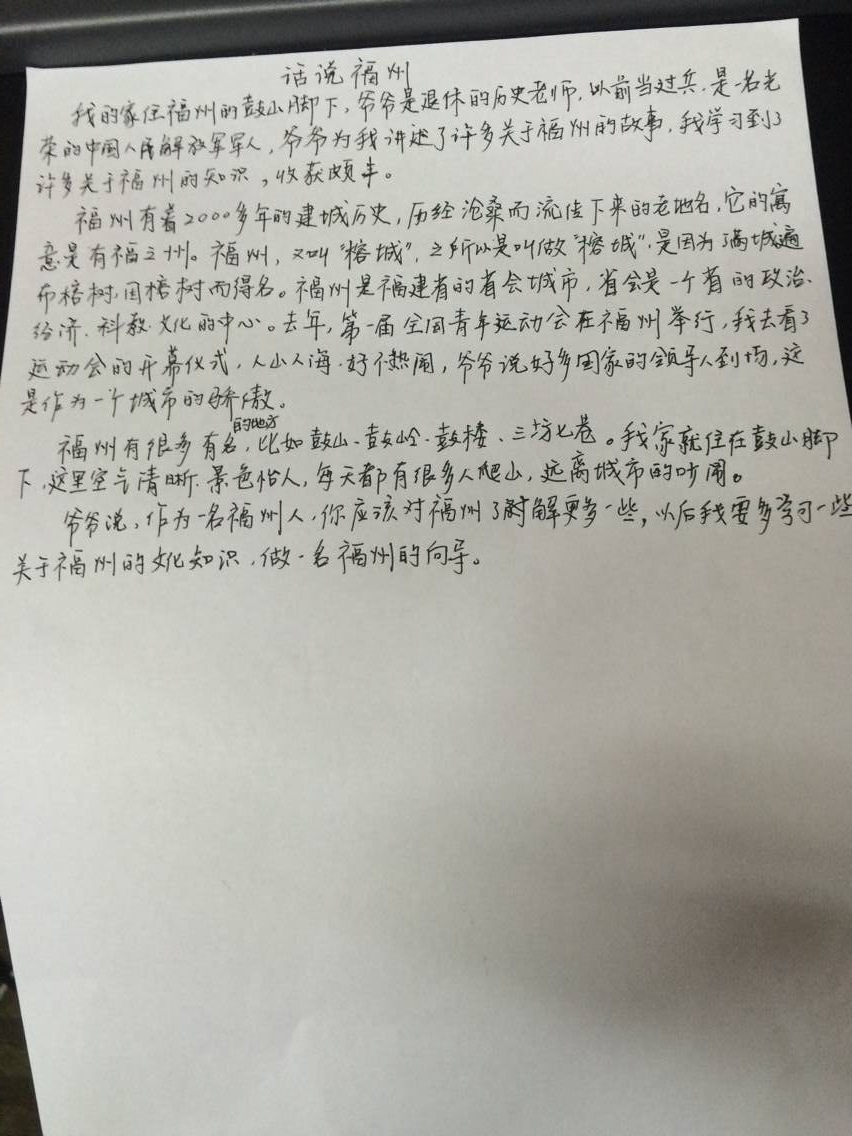 话说福州
我的家住福州的鼓山脚下，爷爷是退休的历史老师，以前当过兵，是一名光
荣的中国人民解放军军人，爷爷为我讲述了许多关于福州的故事，我学习到了
许多关于福州的知识，收获颇丰。
福州有着2000多年的建城历史，历经沧桑而流传下来的老地名，它的寓
意是有福之州。福州，又叫“榕城”，之所以是叫做“榕城”，是因为满城遍
布榕树，因榕树而得名。福州是福建省的省会城市，省会是一个省的政治、
经济、科教、文化的中心。去年，第一届全国青年运动会在福州举行，我去看了
运动会的开幕仪式，人山人海，好不热闹，爷爷说好多国家的领导人到场，这
是作为一个城市的骄傲。
福州有很多有名的地方，比如鼓山、鼓岭、鼓楼、三坊七巷。我家就住在鼓山脚
下，这里空气清晰、景色怡人，每天都有很多人爬山，远离城市的吵闹。
爷爷说，作为一名福州人，你应该对福州了解更多一些，以后我要多学习一些
关于福州的文化知识，做一名福州的向导。